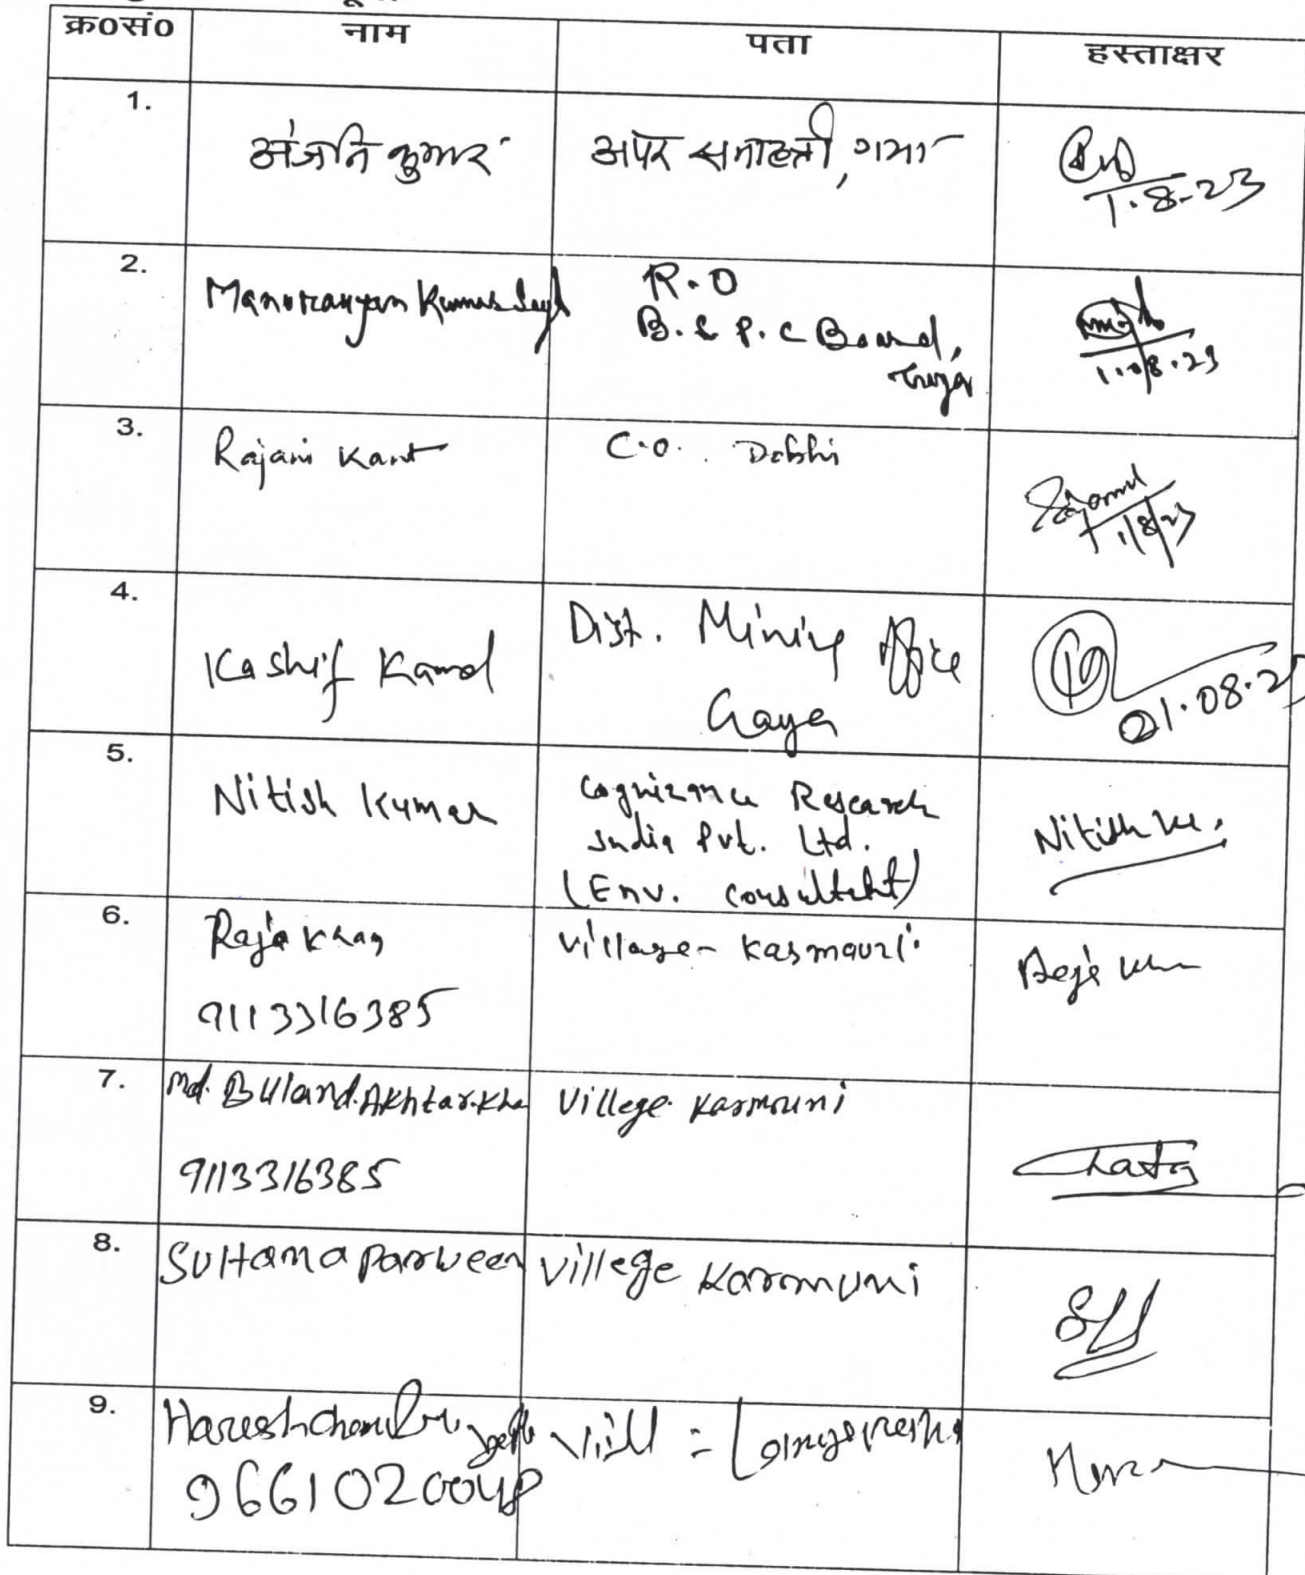 क्र०सं० नाम पता हस्ताक्षर
1. अंजनि कुमार अपर समाहर्ता, गया 1.8.23
2. Manoranjan Kumar Singh R.O
B.S.P.C Board,
Gaya 1.08.23
3. Rajani Kant C.O. Dobhi 1/8/23
4. Kashif Kamal Dist. Mining Office
Gaya 01.08.23
5. Nitish Kumar Cognizance Research
India Pvt. Ltd.
(Env. consultant) Nitish Kr.
6. Raja Khan Village- Kasmauri
9113316385
7. Md. Buland.Akhtar.Kha Villege Karmouni
9113316385
8. Sultana Parween Villege Karmuni
9. Hareshchandra Vill =